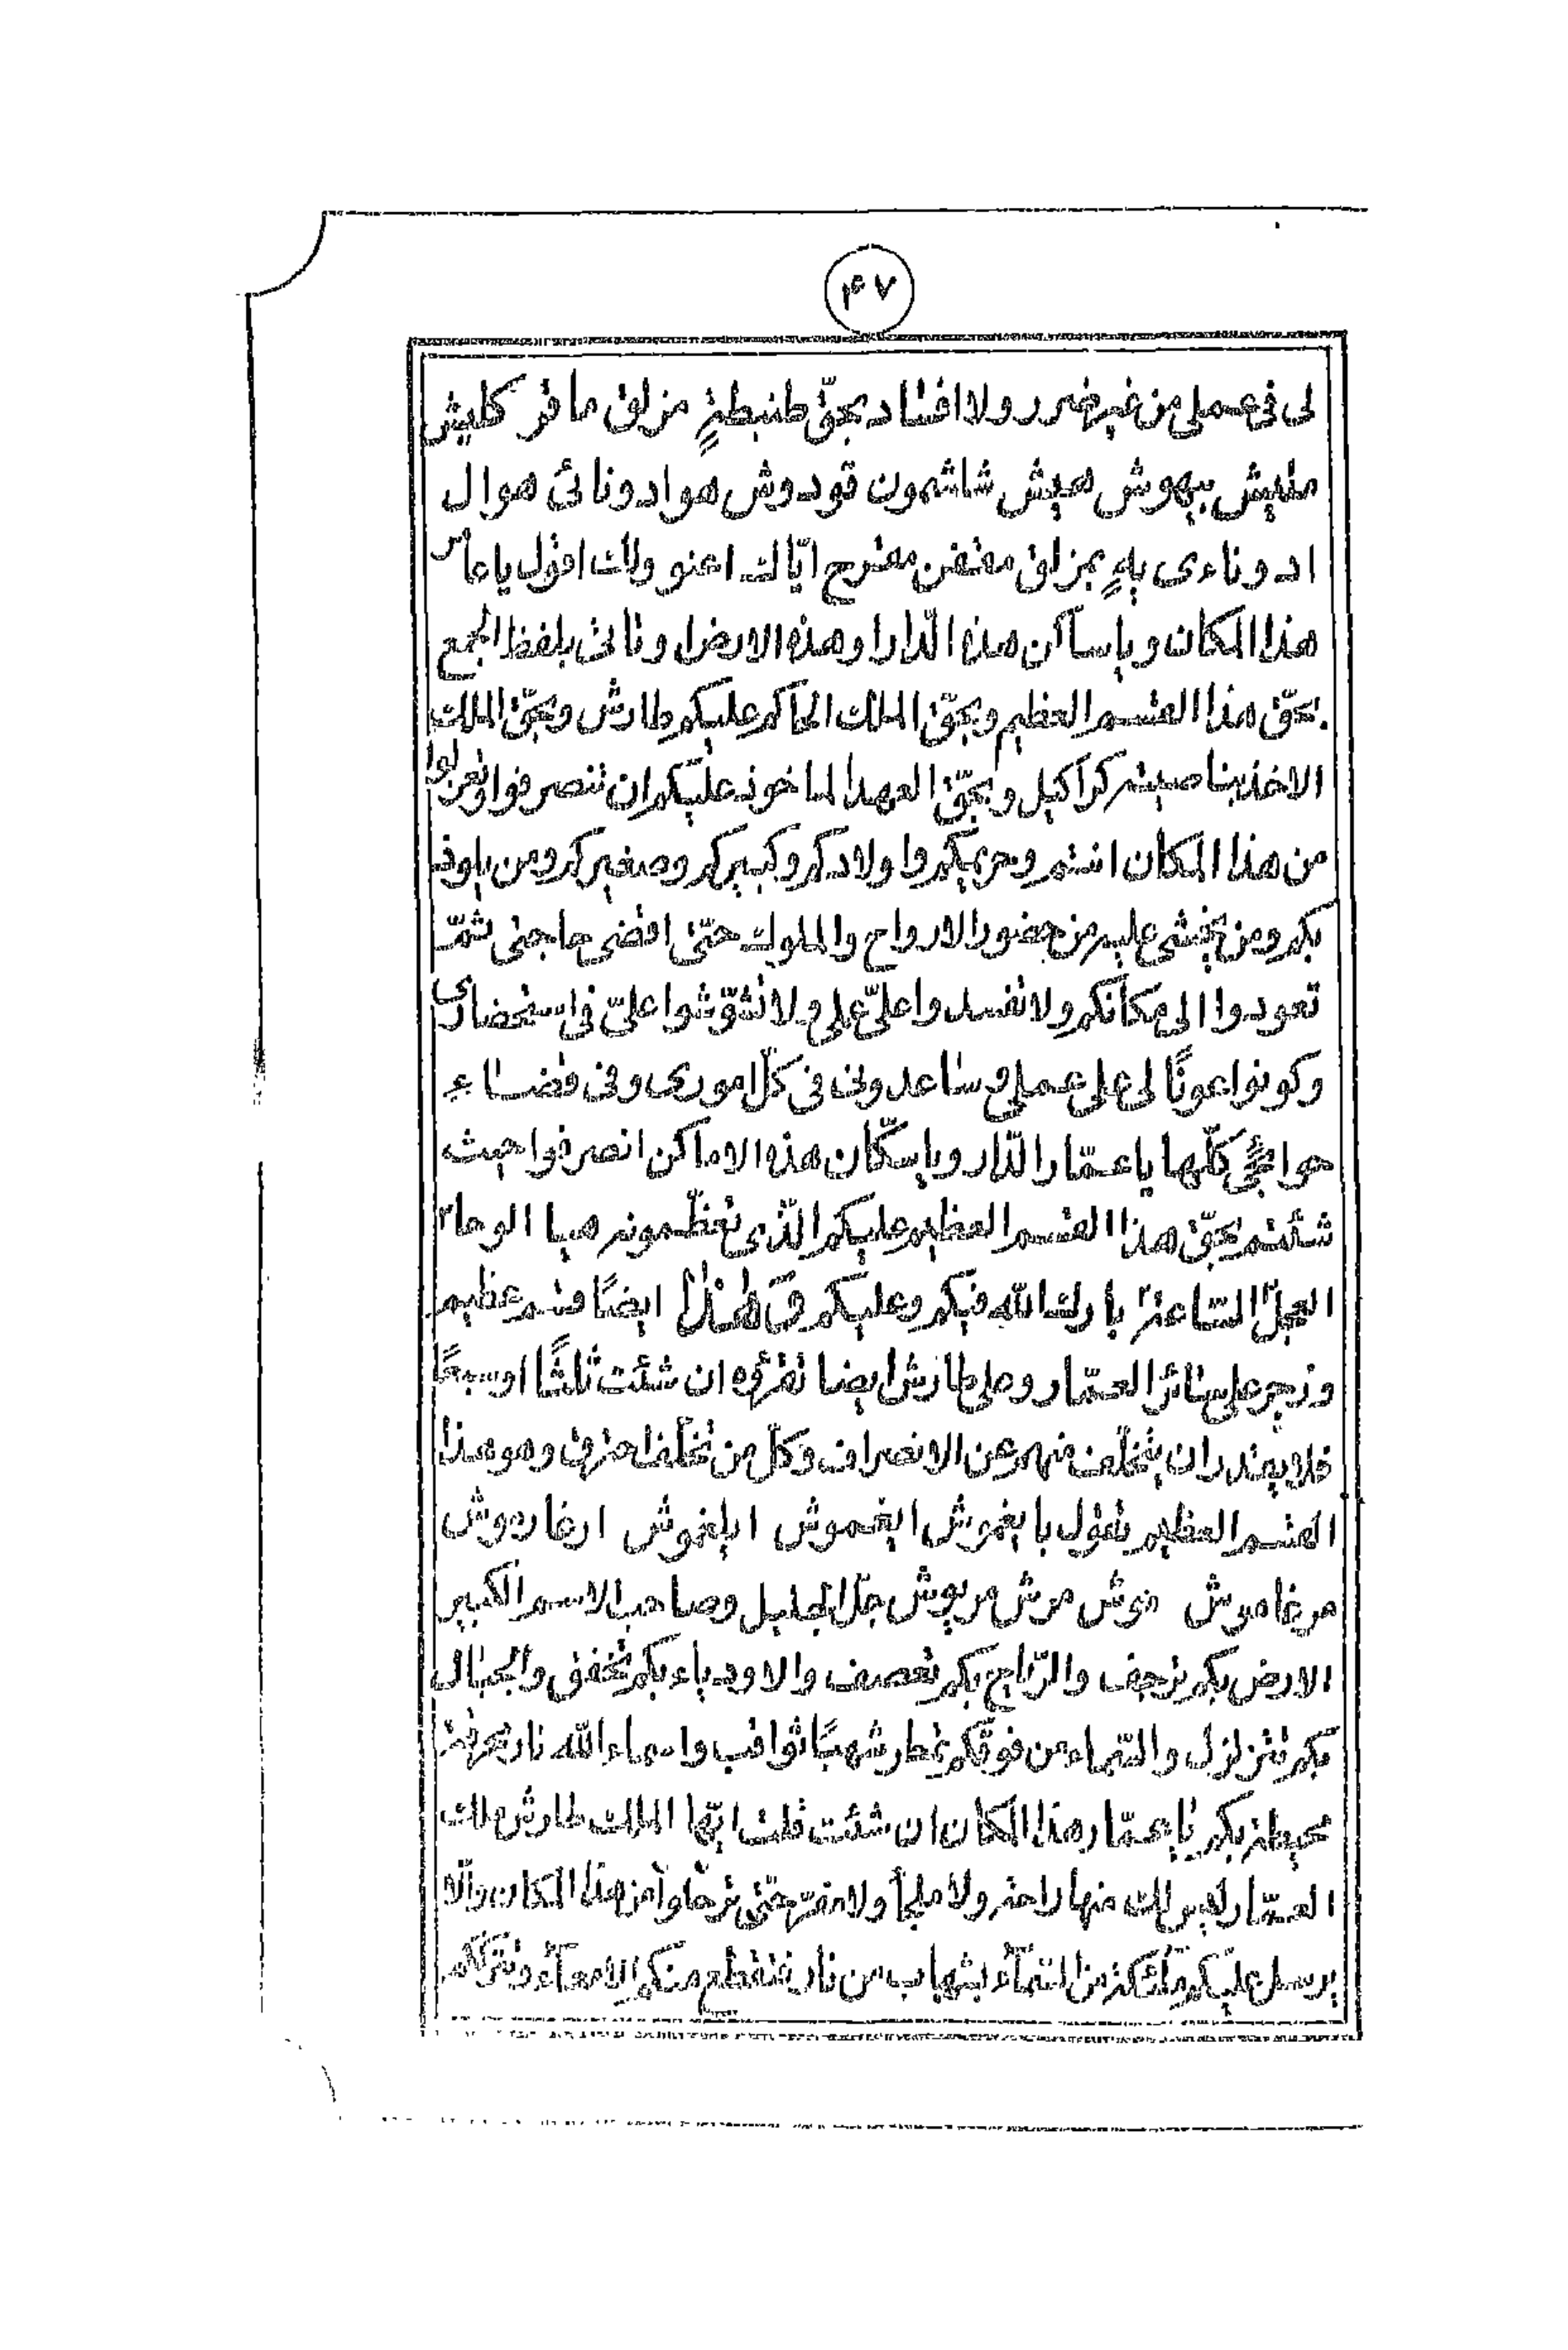 ۴۷
لی فی عملی من غیر ضرر ولا افساد بحقّ طنبطةٍ مزلق ماقر کلیش
ملیش بیهوش هیش شاشمون قودوش هو ادونائی هو ال
ادوناءی یهٍ بمزلق مقتفن مقترح ایّاك اعنو ولك اقول یا عامر
هذا المکان ویا ساکن هذه الدّارا وهذه الارض او تاتی بلفظ الجمع
بحقّ هذا القسم العظیم وبحقّ الملك الحاکم علیکم طارش وبحقّ الملك
الاخذ بناصیته کراکیل وبحقّ العهد الماخوذ علیکم ان تنصرفوا وتعزلوا
من هذا المکان انتم وحریمکم واولادکم وکبیرکم وصغیرکم ومن یلوذ
بکم ومن یخشی علیه من حضور الارواح والملوك حتّی اقضی حاجتی ثمّ
تعودوا الی مکانکم ولا تفسدوا علیّ عملی ولا تشوّشوا علیّ فی استحضاری
وکونوا عونًا لی علی عملی وساعدونی فی کلّ اموری وفی قضاء
حوائجی کلّها یا عمّار الدّار ویا سکّان هذه الاماکن انصرفوا حیث
شئتم بحقّ هذا القسم العظیم علیکم الّذی تعظّمونه هیا الوحا۲
العجل۲ السّاعة۲ بارك الله فیکم وعلیکم وَهٰذا ایضًا قسم عظیم
وزجر علی سائر العمّار وعلی طارش ایضا تقرؤه ان شئت ثلثًا او سبعًا
فلا یقدر ان یتخلّف منهم عن الانصراف وکلّ من تخلّف احترق وهو هذا
القسم العظیم تقول یا یغموش ایغموش ایلغموش ارغاروش
مرغاموش موش مرش مریوش جلّ الجلیل وصاحب الاسم الکبیر
الارض بکم ترجف والرّیاح بکم تعصف والاودیاء بکم تخفق والجبال
بکم تتزلزل والسّماء من فوقکم تمطر شهبًا ثواقب واسماء الله نار محرقة
محیطة بکم یا عمّار هذا المکان ان شئت قلت ایّها الملك طارش ملك
العمّار لیس لك منها راحة ولا ملجأ ولا مفرّ حتّی ترحلوا من هذا المکان والّا
یرسل علیکم ملائکة من السّمآء بشهاب من نار فتقطع منکم الامعآء